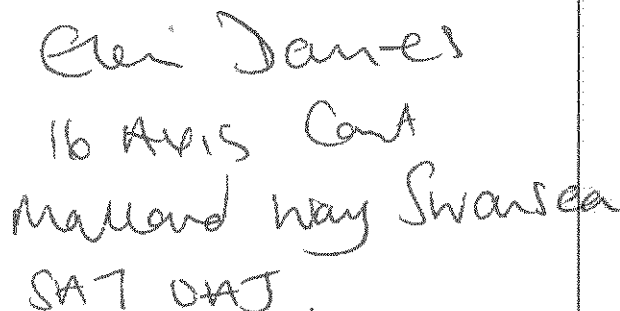 Elen Davies
16 Axis Court
Mallard Way Swansea
SA7 0AJ.